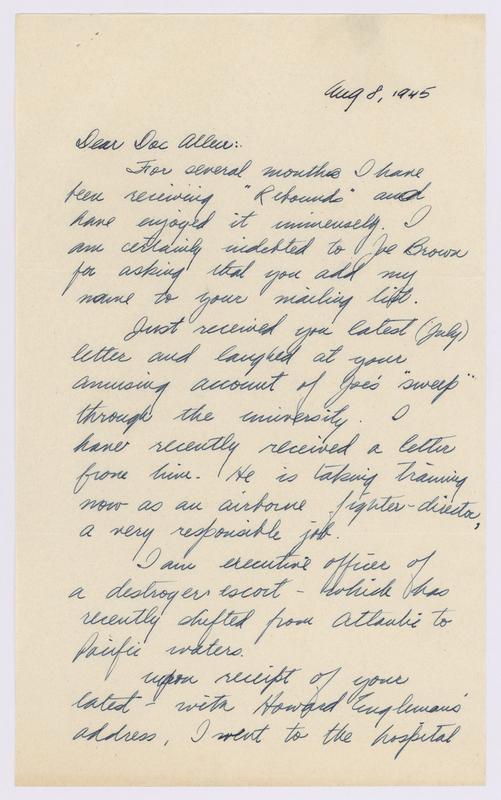 Aug 8, 1945
Dear Doc Allen:
For several months I have
been receiving "Rebounds" and
have enjoyed it immensely. I
am certainly indebted to Joe Brown
for asking that you add my
name to your mailing list.
Just received you latest (July)
letter and laughed at your
amusing account of Joe's "sweep"
through the university. I
have recently received a letter
from him. He is taking training
now as an airborne fighter-director,
a very responsible job.
I am executive officer of
a destroyer escort - which has
recently shifted from Atlantic to
Pacific waters.
Upon receipt of your
latest - with Howard Engleman's
address, I went to the hospital